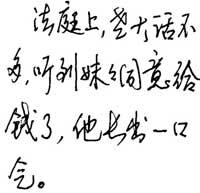 法庭上,楚大话不
多,听到妹妹同意给
钱了,他长出一口
气。